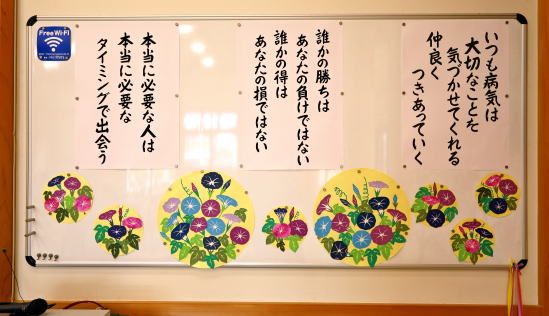 いつも病気は
大切なことを
気づかせてくれる
仲良く
つきあっていく
誰かの勝ちは
あなたの負けではない
誰かの得は
あなたの損ではない
本当に必要な人は
本当に必要な
タイミングで出会う
Free Wi-Fi